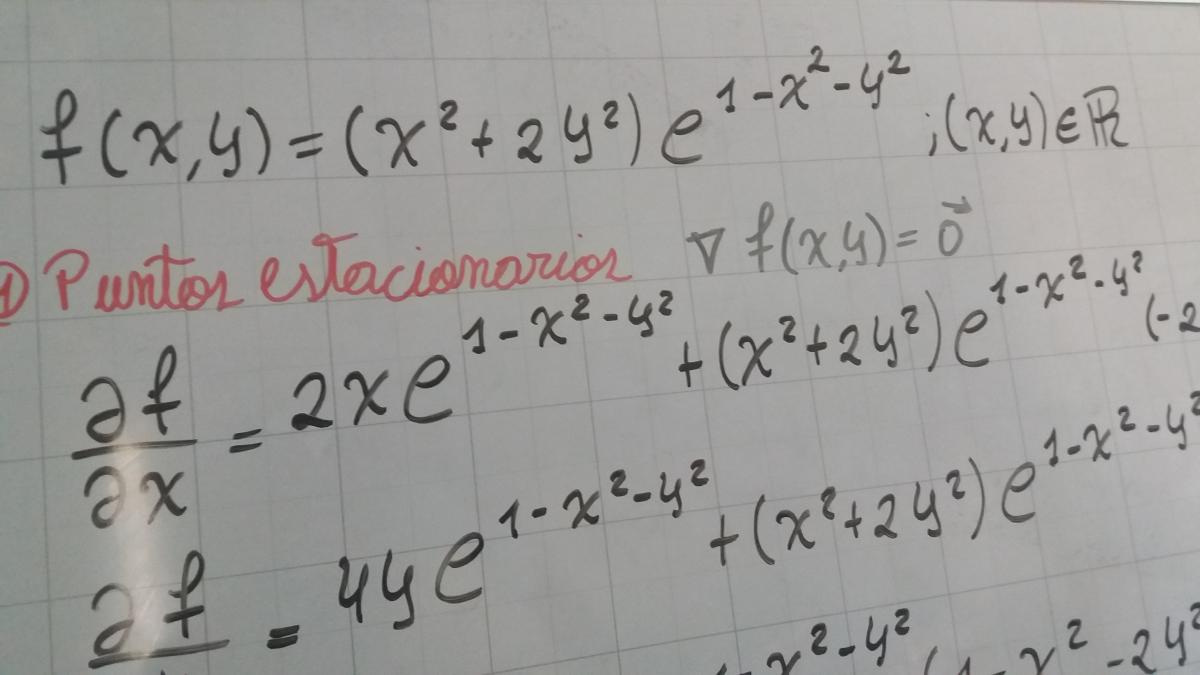 f(x,y) = (x² + 2y²) e^{1-x²-y²} ; (x,y) ∈ ℝ
1) Puntos estacionarios ∇ f(x,y) = 0⃗
∂f/∂x = 2xe^{1-x²-y²} + (x²+2y²) e^{1-x²-y²} (-2
∂f = 4ye^{1-x²-y²} + (x²+2y²) e^{1-x²-y²}
-x²-y² (1-x²-2y²